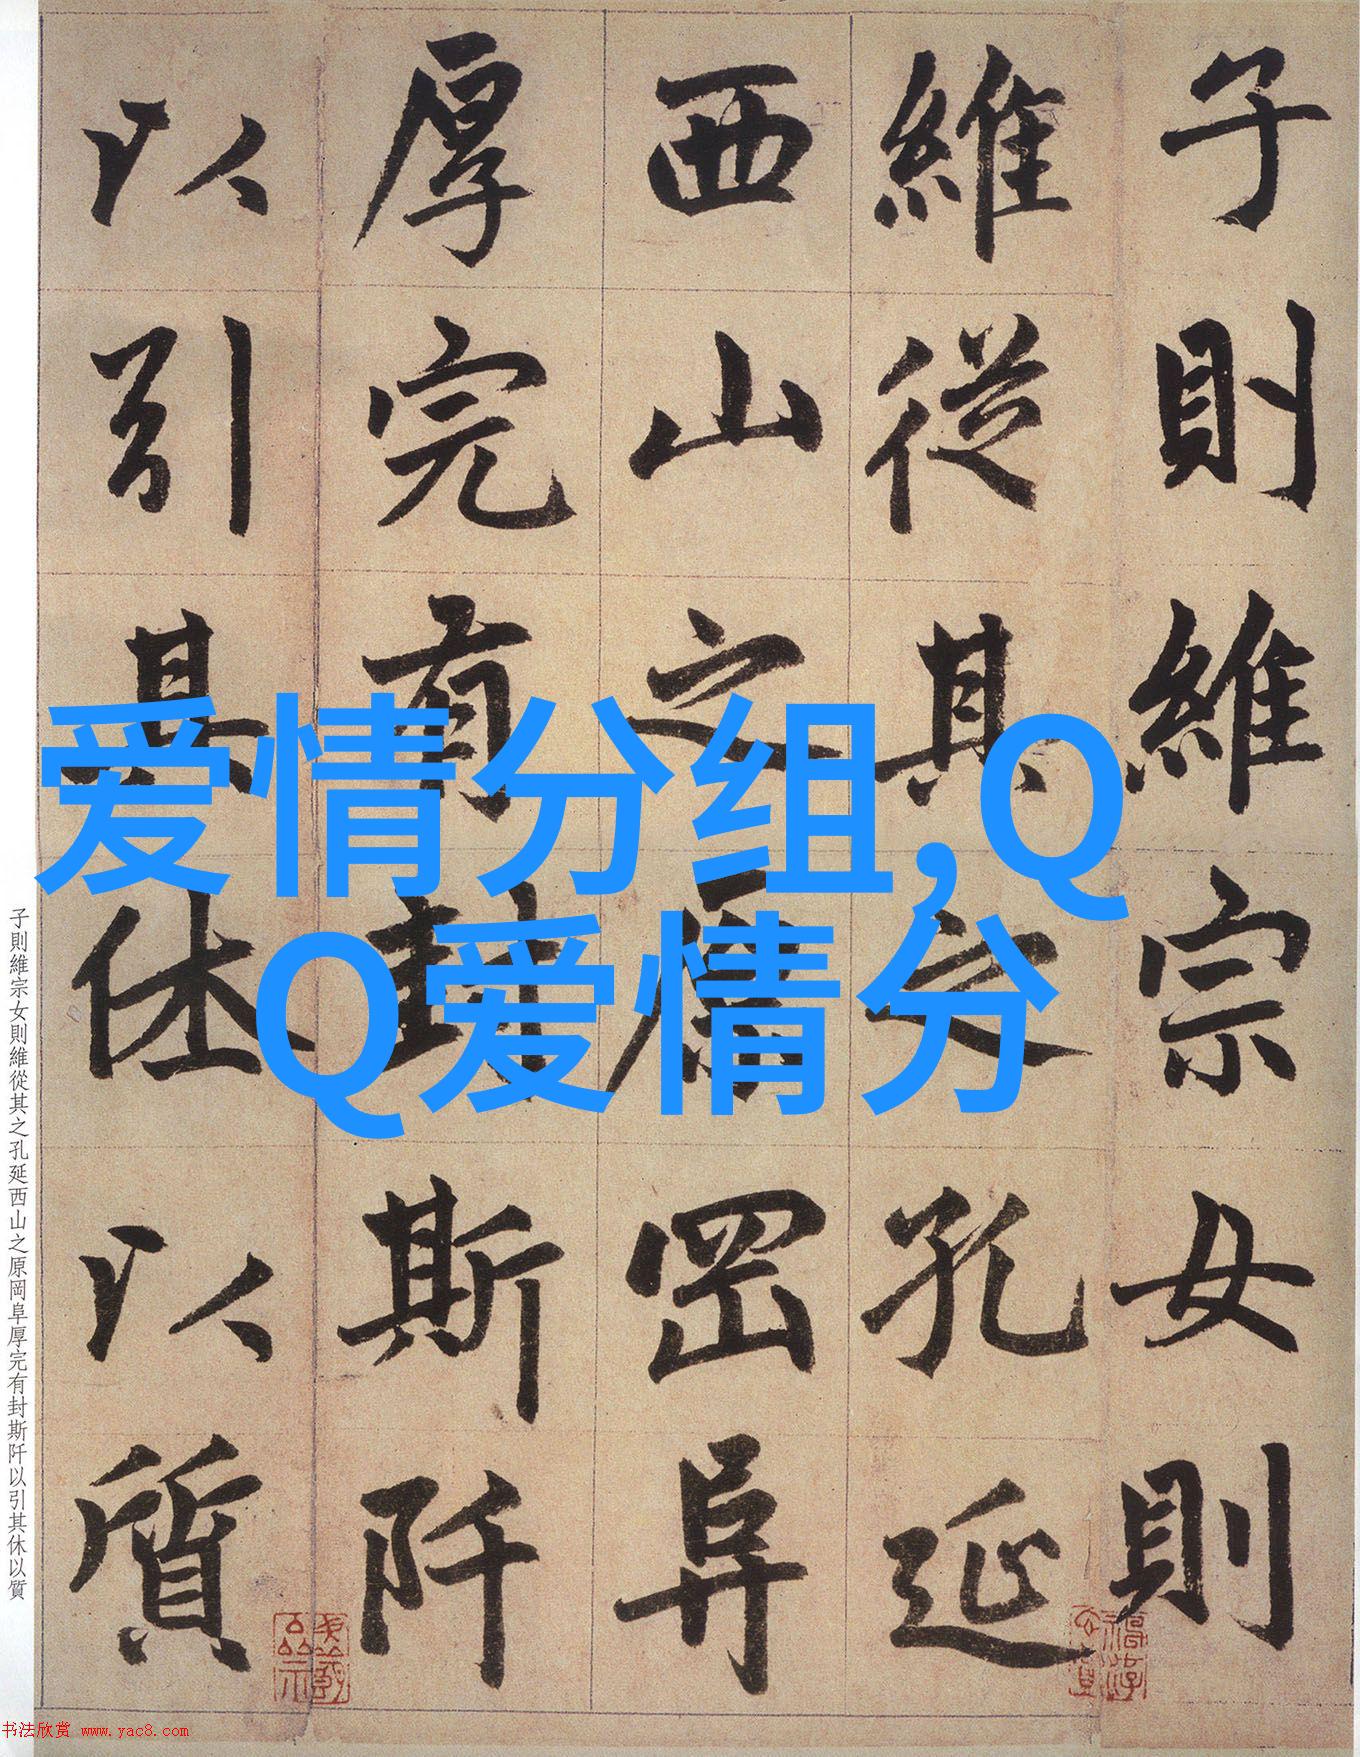 子則維宗女則
維從其之孔延
西山之原岡阜
厚完有封斯阡
以引其休以質
爱情分组,Q
Q爱情分
子則維宗女則維從其之孔延西山之原岡阜厚完有封斯阡以引其休以質
书法欣赏 www.yac8.com